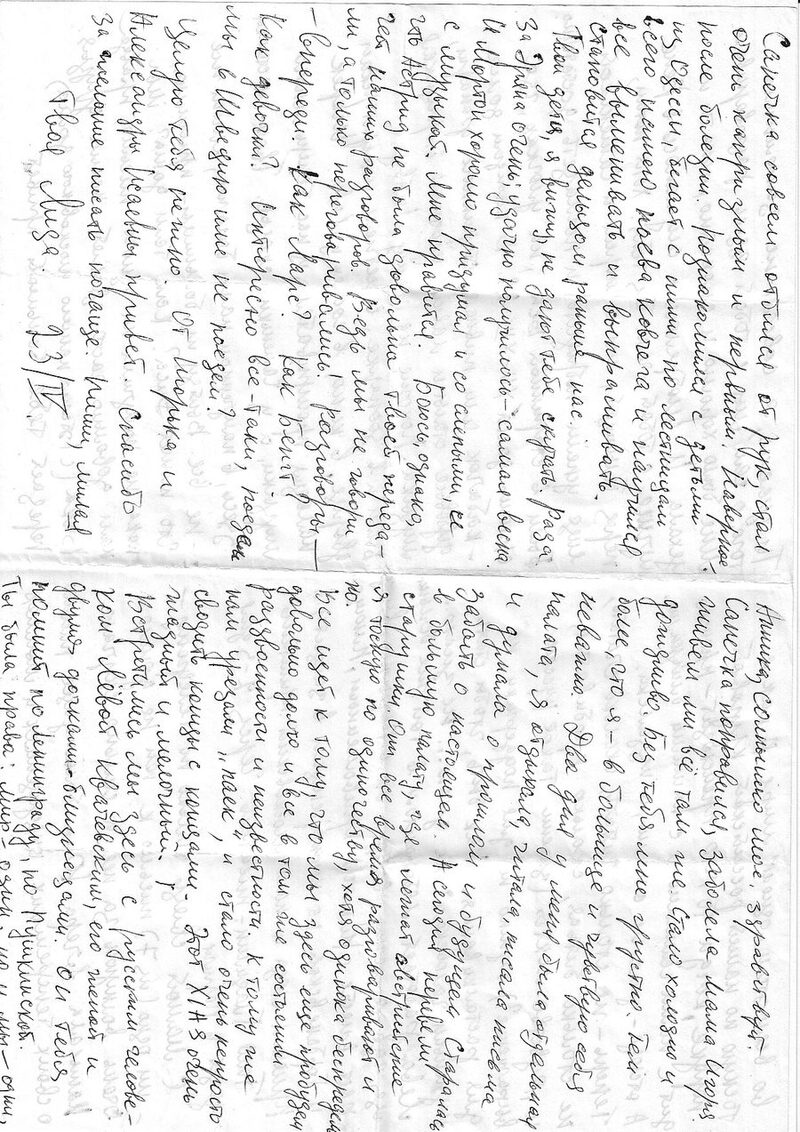 Сапечка совсем отбился от рук, стал
очень капризным и нервным. Наверное,
после болезни. Познакомился с детьми
из Одессы, бегает с ними по лестницам
всего нашего ноева ковчега и научился
все выменивать и выпрашивать.
Становится дельцом раньше нас.
Твои дети, я вижу, не дают тебе скучать. Раза
за Эряна очень; удачно получилось - самая весна.
И Мортон хорошо придумал и со слепыми, и
с музыкой. Мне нравится. Боюсь, однако,
что Астрид не была довольна твоей переда-
чей наших разговоров. Ведь мы не говори
ли, а только переговаривались! Разговоры -
- впереди. Как Ларс? Как Бенгт?
Как девочки? Интересно все-таки, поедем
мы в Швецию или не поедем?
Целую тебя нежно. От Игорька и
Александры Исаевны привет. Спасибо
за желание писать почаще. Пиши, милая
Твоя Лида. 23/IV.
Анника, солнышко мое, здравствуй.
Сапечка поправился, заболела мама Игоря.
Живем мы всё там же. Стало холодно и
дождливо. Без тебя мне грустно. Тем
более, что я - в больнице и чувствую себя
неважно. Два дня у меня была отдельная
палата, я отдыхала, читала, писала письма
и думала о прошлом и будущем. Старалась
забыть о настоящем. А сегодня перевели
в большую палату, где лежат австрийские
старушки. Они все время разговаривают и
я тоскую по одиночеству, хотя одинока беспредель
но.
Все идет к тому, что мы здесь еще пробудем
довольно долго и все в том же состоянии
раздвоенности и неизвестности. К тому же
нам урезали „паек", и стало очень непросто
сводить концы с концами. Этот ХIАЗ очень
жадный и мелочный.
Встретились мы здесь с русским челове-
ком Лёвой Квачевским, его женой и
двумя дочками-близнецами. Он тебя
помнит по Ленинграду, по Пушкинской.
Ты была права: мир - один, но и мы - одни,